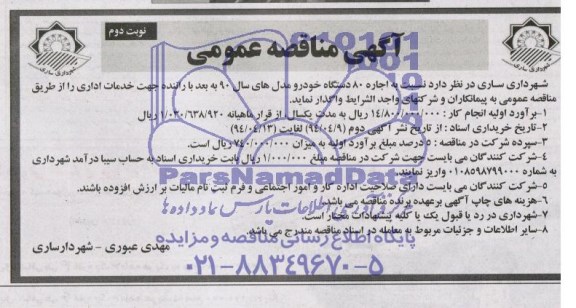 نوبت دوم
آگهی مناقصه عمومی
شهرداری ساری
شهرداری ساری
شهرداری ساری در نظر دارد نسبت به اجاره ۸۰ دستگاه خودرو مدل های سال ۹۰ به بعد با راننده جهت خدمات اداری را از طریق
مناقصه عمومی به پیمانکاران و شرکتهای واجد الشرایط واگذار نماید.
۱-برآورد اولیه انجام کار : ۱۴/۸۰۰/۰۰۰/۰۰۰ ریال به مدت یکسال از قرار ماهیانه ۱/۰۳۰/۶۳۸/۹۲۰ ریال
۲-تاریخ خریداری اسناد: از تاریخ نشر آگهی دوم (۹۴/۰۴/۹) لغایت (۹۴/۰۴/۱۳)
۳-سپرده شرکت در مناقصه: ۵ درصد مبلغ برآورد اولیه به میزان ۷۴۰/۰۰۰/۰۰۰ ریال است.
۴-شرکت کنندگان می بایست جهت شرکت در مناقصه مبلغ ۱/۰۰۰/۰۰۰ ریال بابت خریداری اسناد به حساب سیبا درآمد شهرداری
به شماره ۰۱۰۸۵۹۸۷۹۹۰۰۰ واریز نمایند.
۵-شرکت کنندگان می بایست دارای صلاحیت اداره کار و امور اجتماعی و فرم ثبت نام مالیات بر ارزش افزوده باشند.
۶-هزینه های چاپ آگهی برعهده برنده مناقصه می باشد.
۷-شهرداری در رد یا قبول یک یا کلیه پیشنهادات مختار است.
۸-سایر اطلاعات و جزئیات مربوط به معامله در اسناد مناقصه مندرج می باشد.
مهدی عبوری - شهردارساری
ParsNamadData
پایگاه اطلاع رسانی مناقصه و مزایده
۰۲۱-۸۸۳۴۹۶۷۰-۵